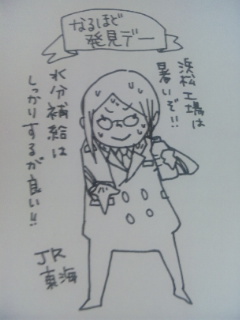 なるほど
発見デー
浜松工場は
暑いぞ!!
水分補給は
しっかりするが良い!!
JR
東海